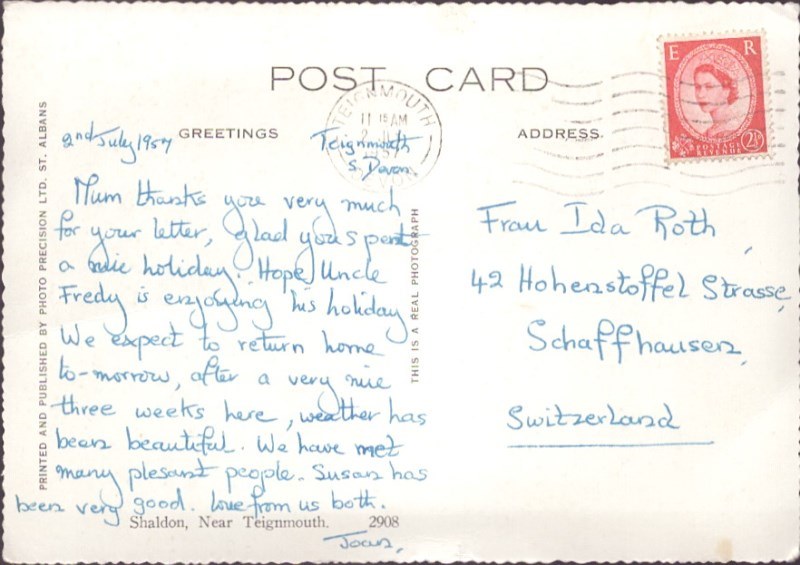 POST CARD
E R
POSTAGE
REVENUE
2½
TEIGNMOUTH
11 15 AM
1957
DEVON
2nd July 1957
GREETINGS
Teignmouth
S Devon
ADDRESS.
Mum thanks you very much
for your letter, glad you spent
a nice holiday. Hope Uncle
Fredy is enjoying his holiday
We expect to return home
to-morrow, after a very nice
three weeks here, weather has
been beautiful. We have met
many plesant people. Susan has
been very good. Love from us both.
Joan,
Frau Ida Roth,
42 Hohenstoffel Strasse,
Schaffhausen,
Switzerland
PRINTED AND PUBLISHED BY PHOTO PRECISION LTD. ST. ALBANS
THIS IS A REAL PHOTOGRAPH
Shaldon, Near Teignmouth. 2908